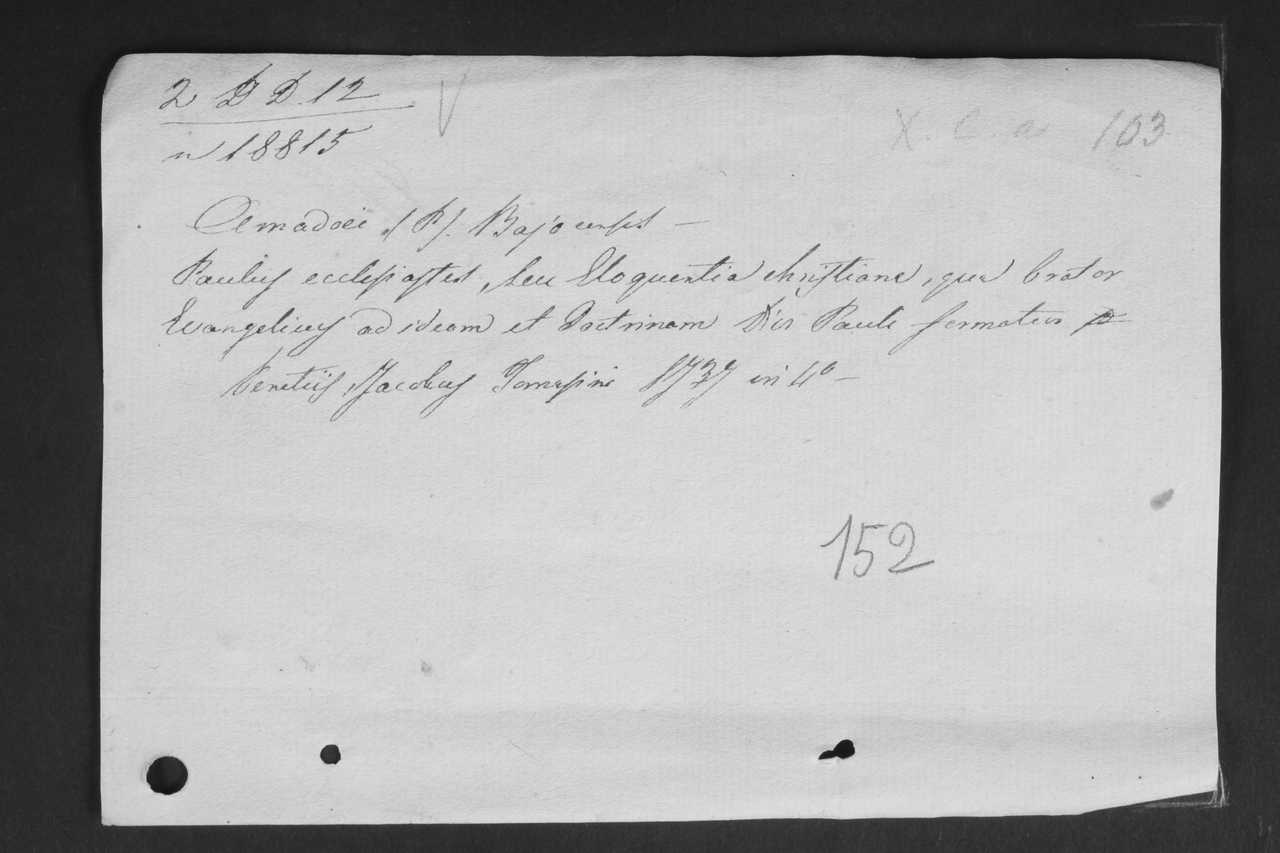 2 D D. 12 V
n 18815
X. 103
Amadoei (P). Bajocensis —
Paulus ecclesiastes, seu Eloquentia christiana, qua Orator
Evangelicus ad ideam et doctrinam Divi Pauli formatur
Venetiis, Jacobus Tomasini 1737 in 4º —
152